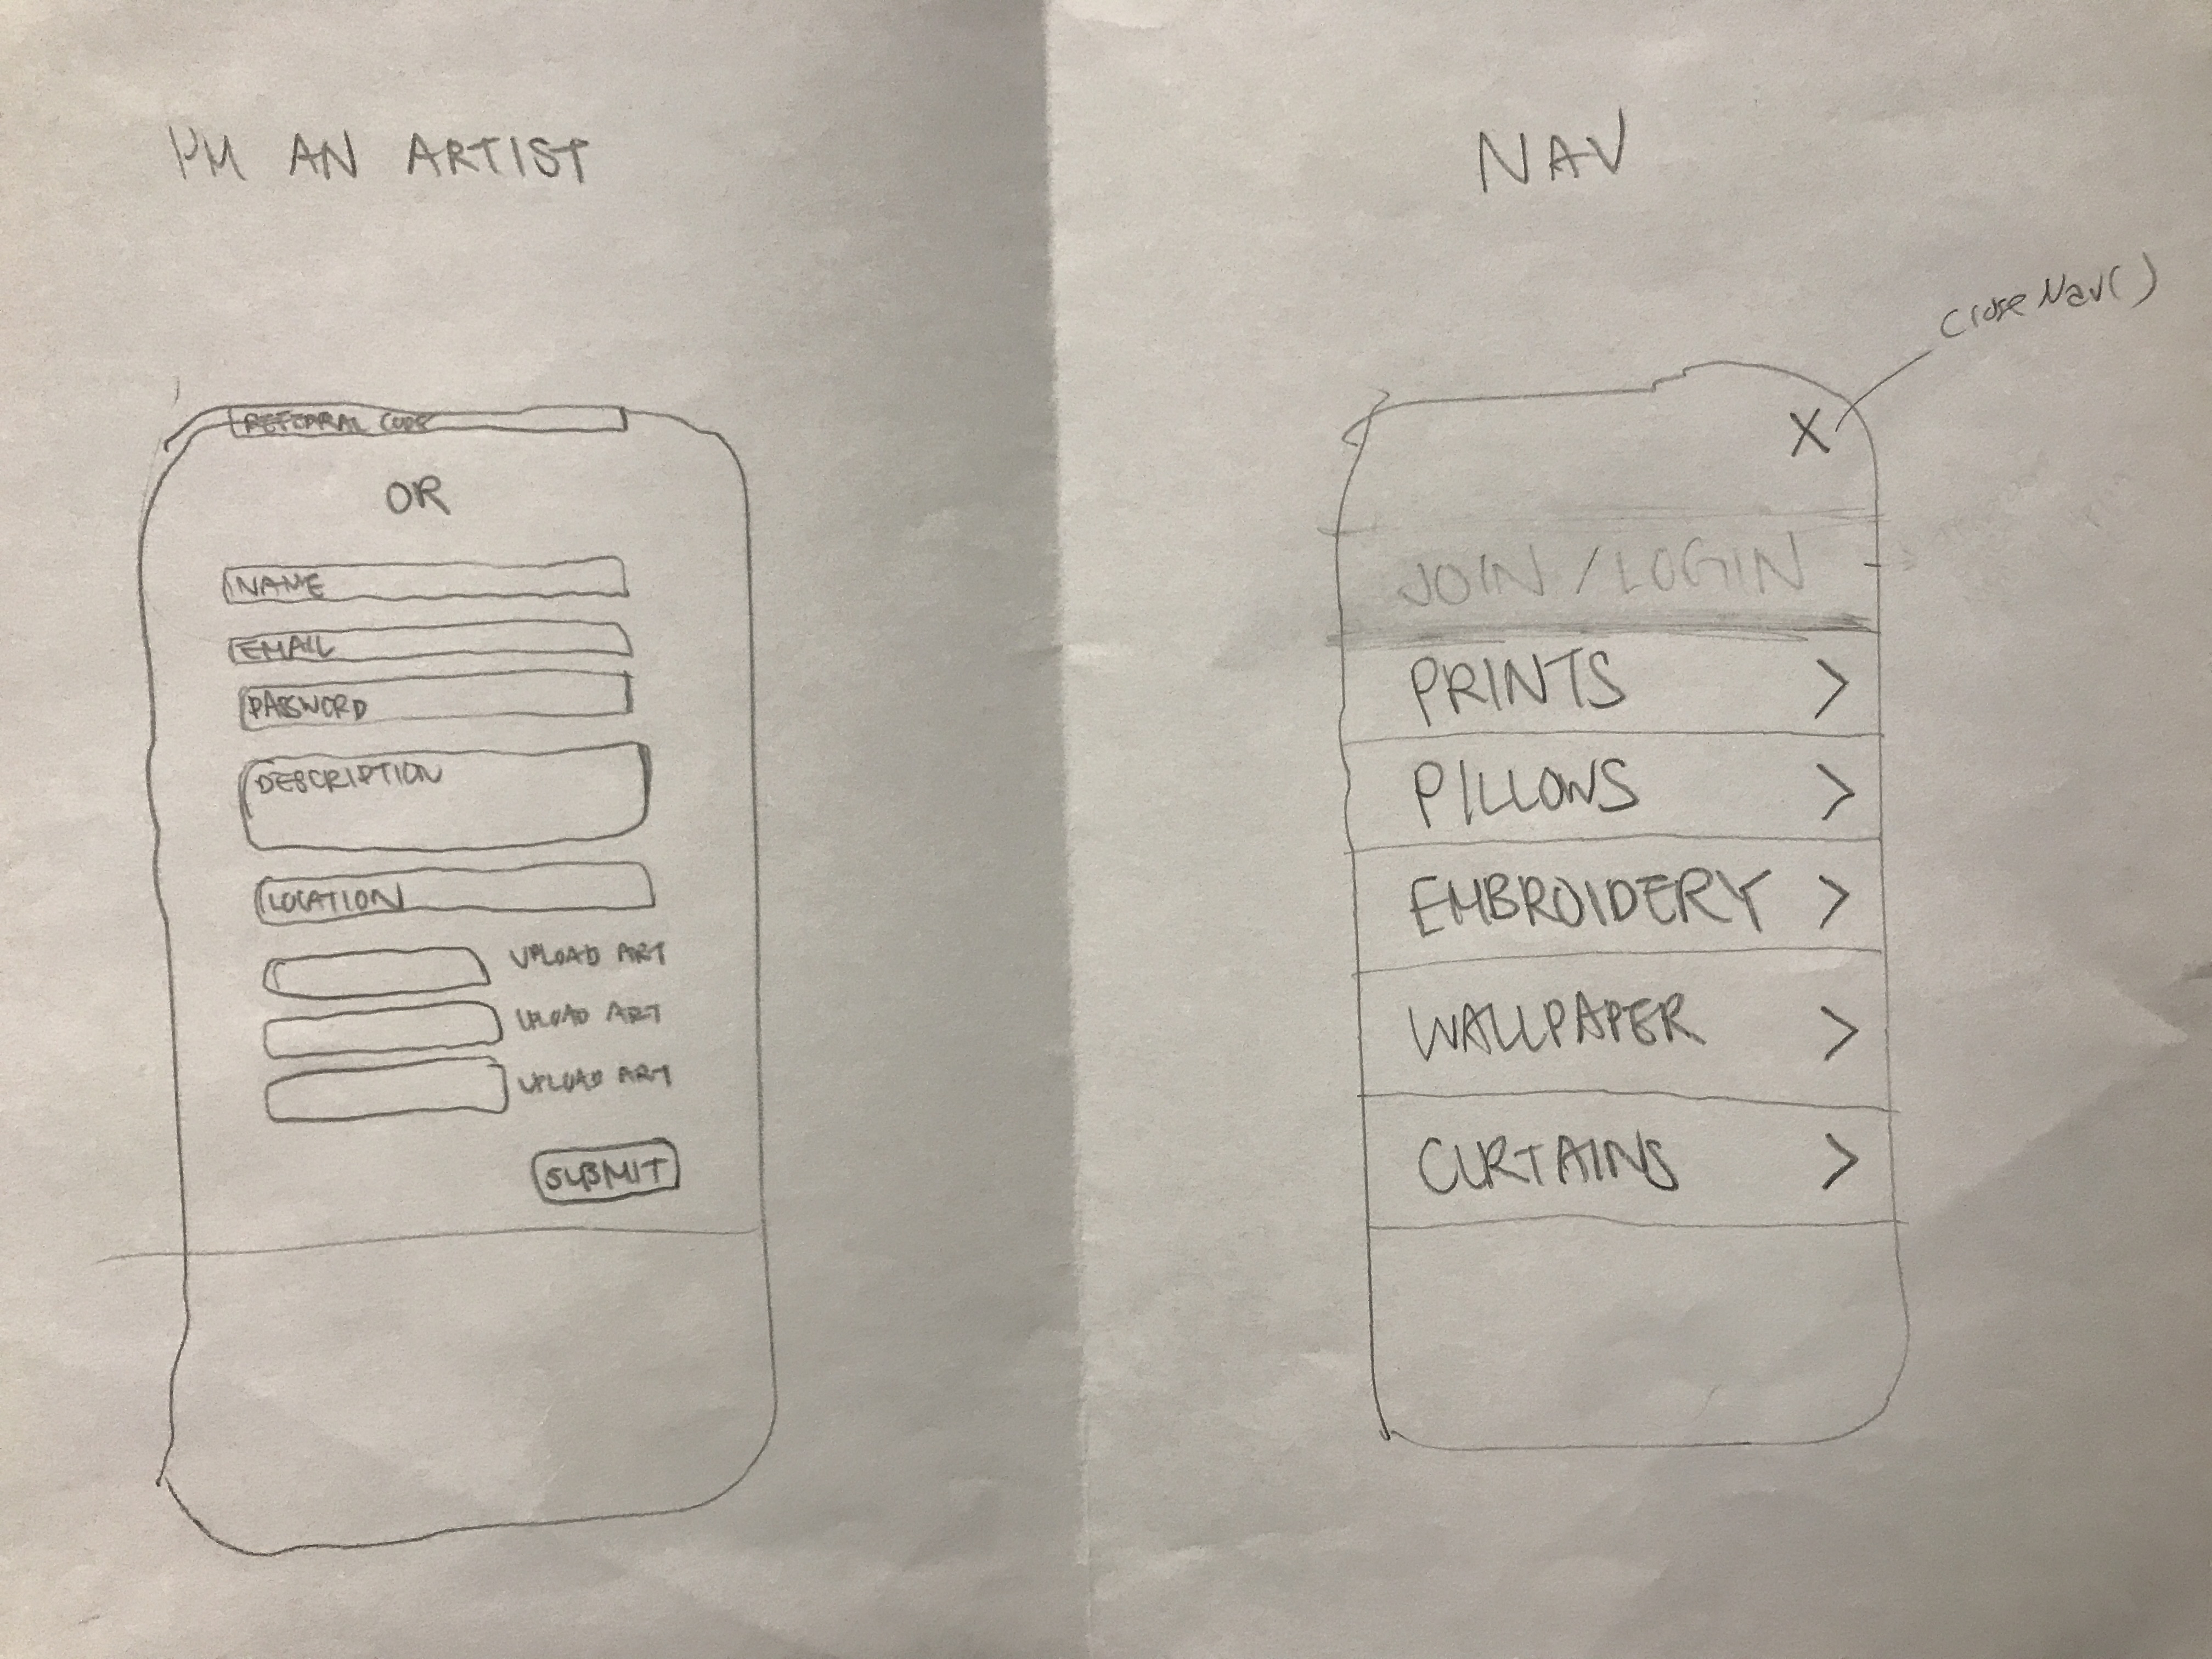 I'M AN ARTIST
REFERRAL CODE
OR
NAME
EMAIL
PASSWORD
DESCRIPTION
LOCATION
UPLOAD ART
UPLOAD ART
UPLOAD ART
SUBMIT
NAV
closeNav()
X
JOIN / LOGIN
PRINTS >
PILLOWS >
EMBROIDERY >
WALLPAPER >
CURTAINS >